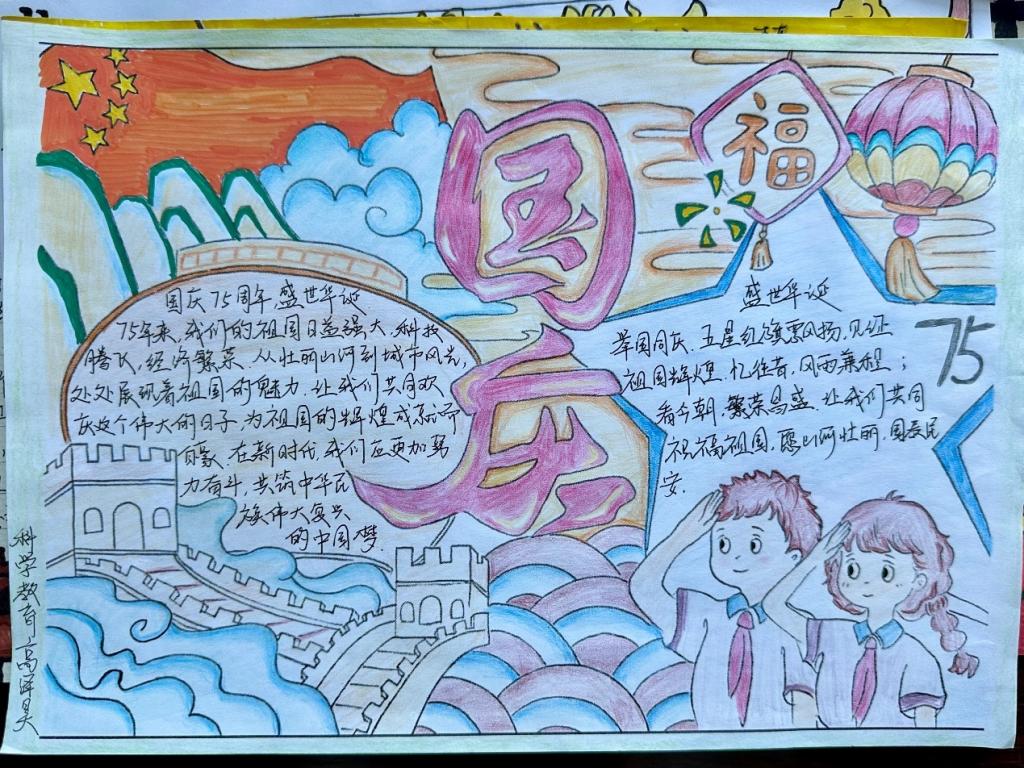 国庆
福
国庆75周年,盛世华诞
75年来,我们的祖国日益强大,科技
腾飞,经济繁荣.从壮丽山河到城市风光,
处处展现着祖国的魅力.让我们共同欢
庆这个伟大的日子,为祖国的辉煌成就而
自豪.在新时代,我们应更加努
力奋斗,共筑中华民
族伟大复兴
的中国梦.
盛世华诞
举国同庆,五星红旗飘风扬,见证
祖国辉煌.忆往昔,风雨兼程;
看今朝,繁荣昌盛.让我们共同
祝福祖国,愿山河壮丽,国泰民
安.
75
科学教育